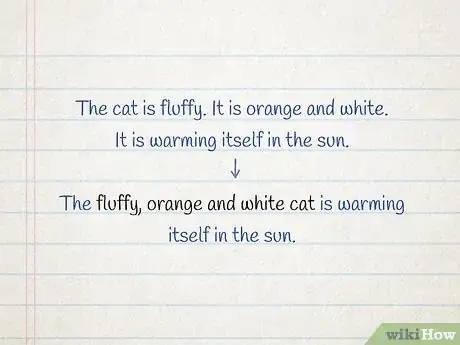 The cat is fluffy. It is orange and white.
It is warming itself in the sun.
↓
The fluffy, orange and white cat is warming
itself in the sun.
wikiHow